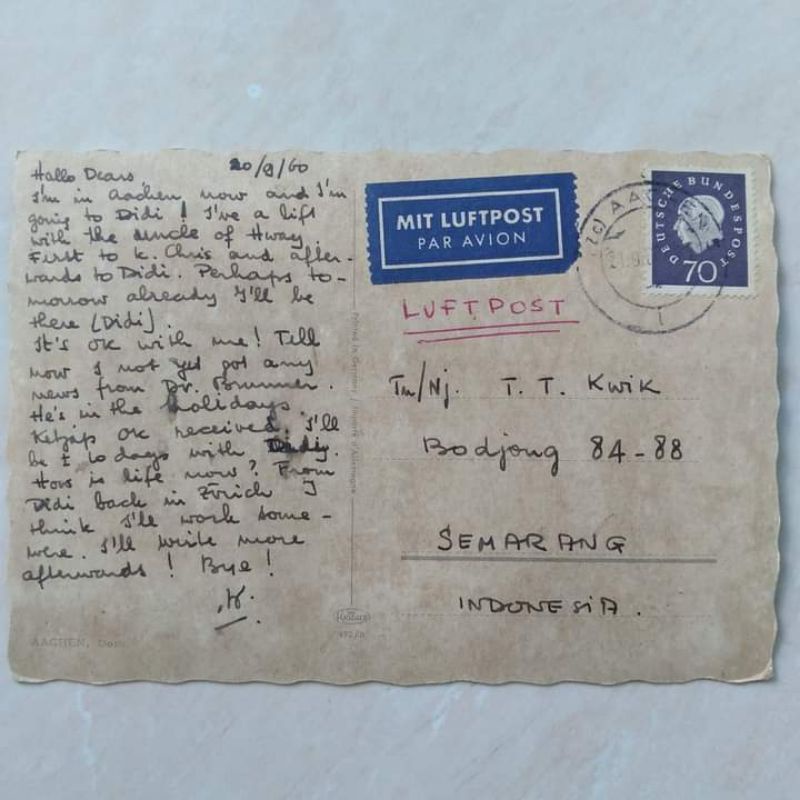 20/9/60
Hallo Dears,
I'm in Aachen now and I'm
going to Didi! I've a lift
with the uncle of Hway.
First to K. Chris and after-
wards to Didi. Perhaps to-
morrow already I'll be
there (Didi).
It's ok with me! Tell
now I not yet got any
news from Dr. Brunner.
He's in the holidays.
Ketjap ok received. I'll
be ± 10 days with Didi.
How is life now? From
Didi back in Zürich I
think I'll work some-
were. I'll write more
afterwards! Bye!
AACHEN, Dom
Printed in Germany / Importé d'Allemagne
MIT LUFTPOST
PAR AVION
LUFTPOST
DEUTSCHE BUNDESPOST
70
Tn/Nj. T. T. Kwik
Bodjong 84-88
SEMARANG
INDONESIA.